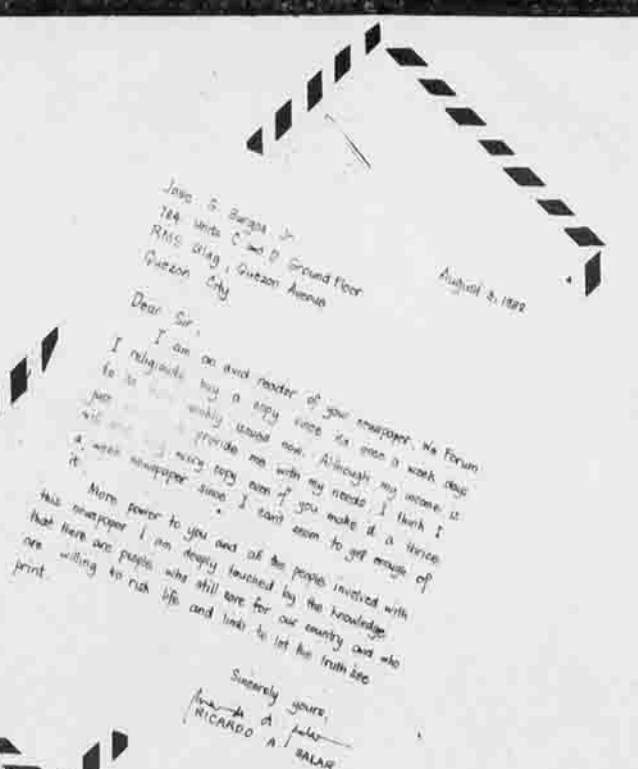 Jose G. Burgos Jr.
784 Units C and D Ground Floor
RMS Bldg, Quezon Avenue
Quezon City
August 3, 1982
Dear Sir,
I am an avid reader of your newspaper, We Forum
I religiously buy a copy since its once a week days
to its weekly issues now. Although my income is
just provide me with my needs, I think I
will buy every copy even if you make it a thrice
a week newspaper since I can't seem to get enough of
it.
More power to you and all the people involved with
this newspaper I am deeply touched by the knowledge
that there are people who still care for our country and who
are willing to risk life and limb to let the truth see
print.
Sincerely yours,
RICARDO A. SALAR